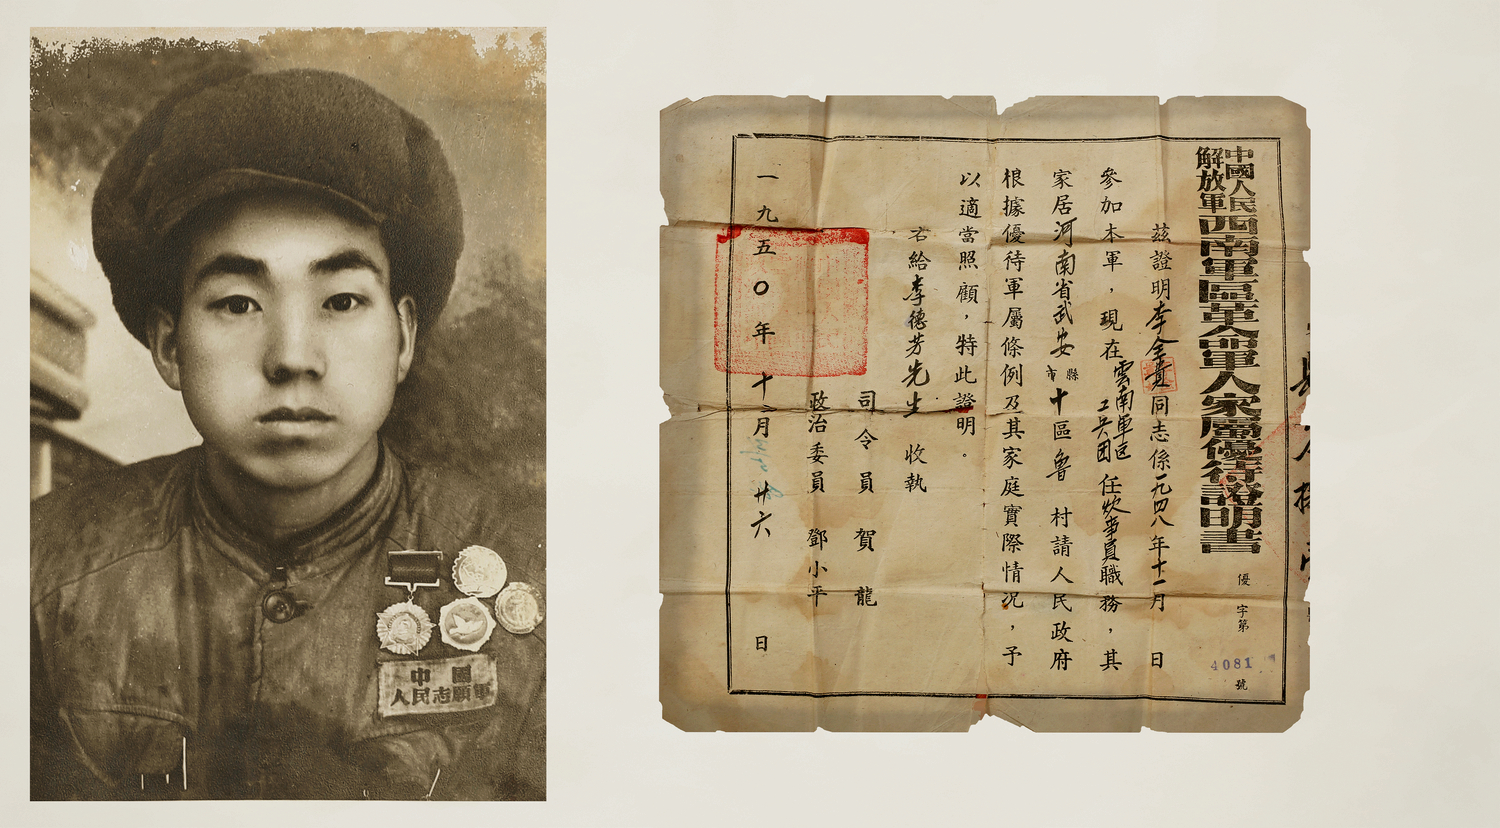 中國
人民志願軍
中國人民
解放軍
西南軍區革命軍人家屬優待證明書
優
字第
4081
號
茲證明李金貴同志係一九四八年十一月 日
參加本軍，現在雲南軍區工兵团任炊事員職務，其
家居河南省武安縣市十區魯 村請人民政府
根據優待軍屬條例及其家庭實際情况，予
以適當照顧，特此證明。
右給李德芳先生 收執
司令員 賀龍
政治委員 鄧小平
一九五〇年十二月廿六 日